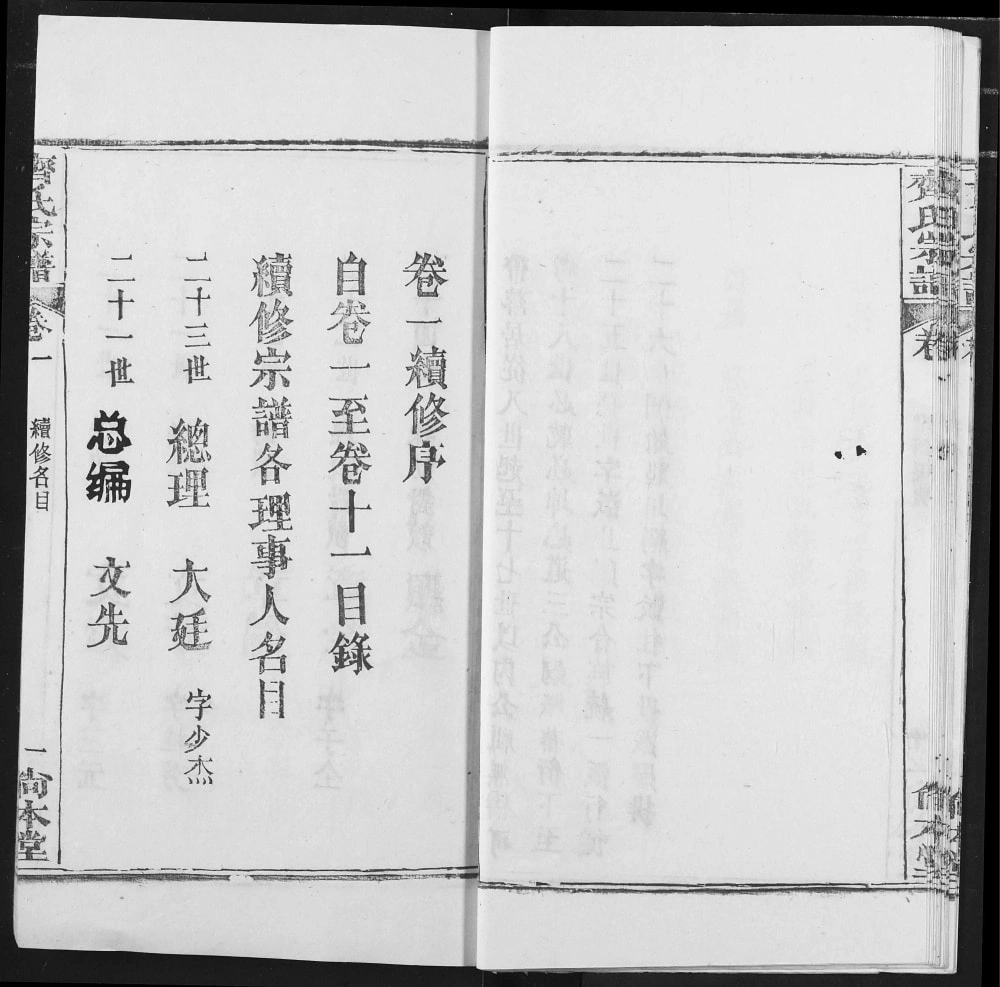 齊氏宗譜
卷
尙本堂
卷一續修序
自卷一至卷十一目錄
續修宗譜各理事人名目
二十三世 總理 大廷 字少杰
二十一世 总编 文先
齊氏宗譜 卷一 續修名目 一 尙本堂